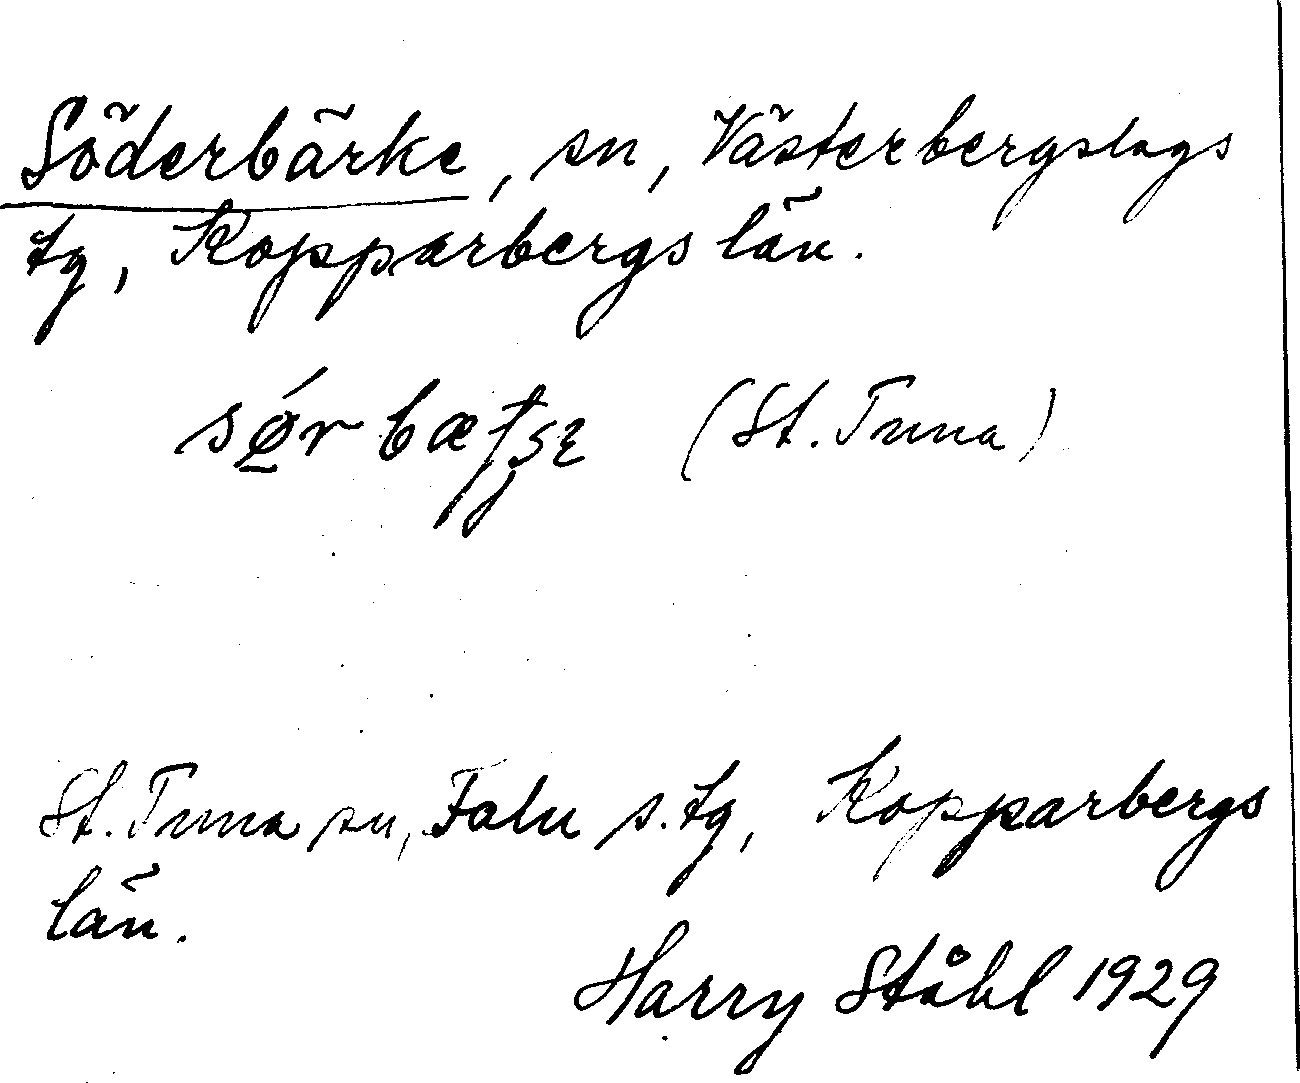 Söderbärke, sn, Västerbergslags
tg, Kopparbergs län.
(St. Tuna)
St. Tuna sn, Falu s. tg, Kopparbergs
län.
Harry Ståhl 1929